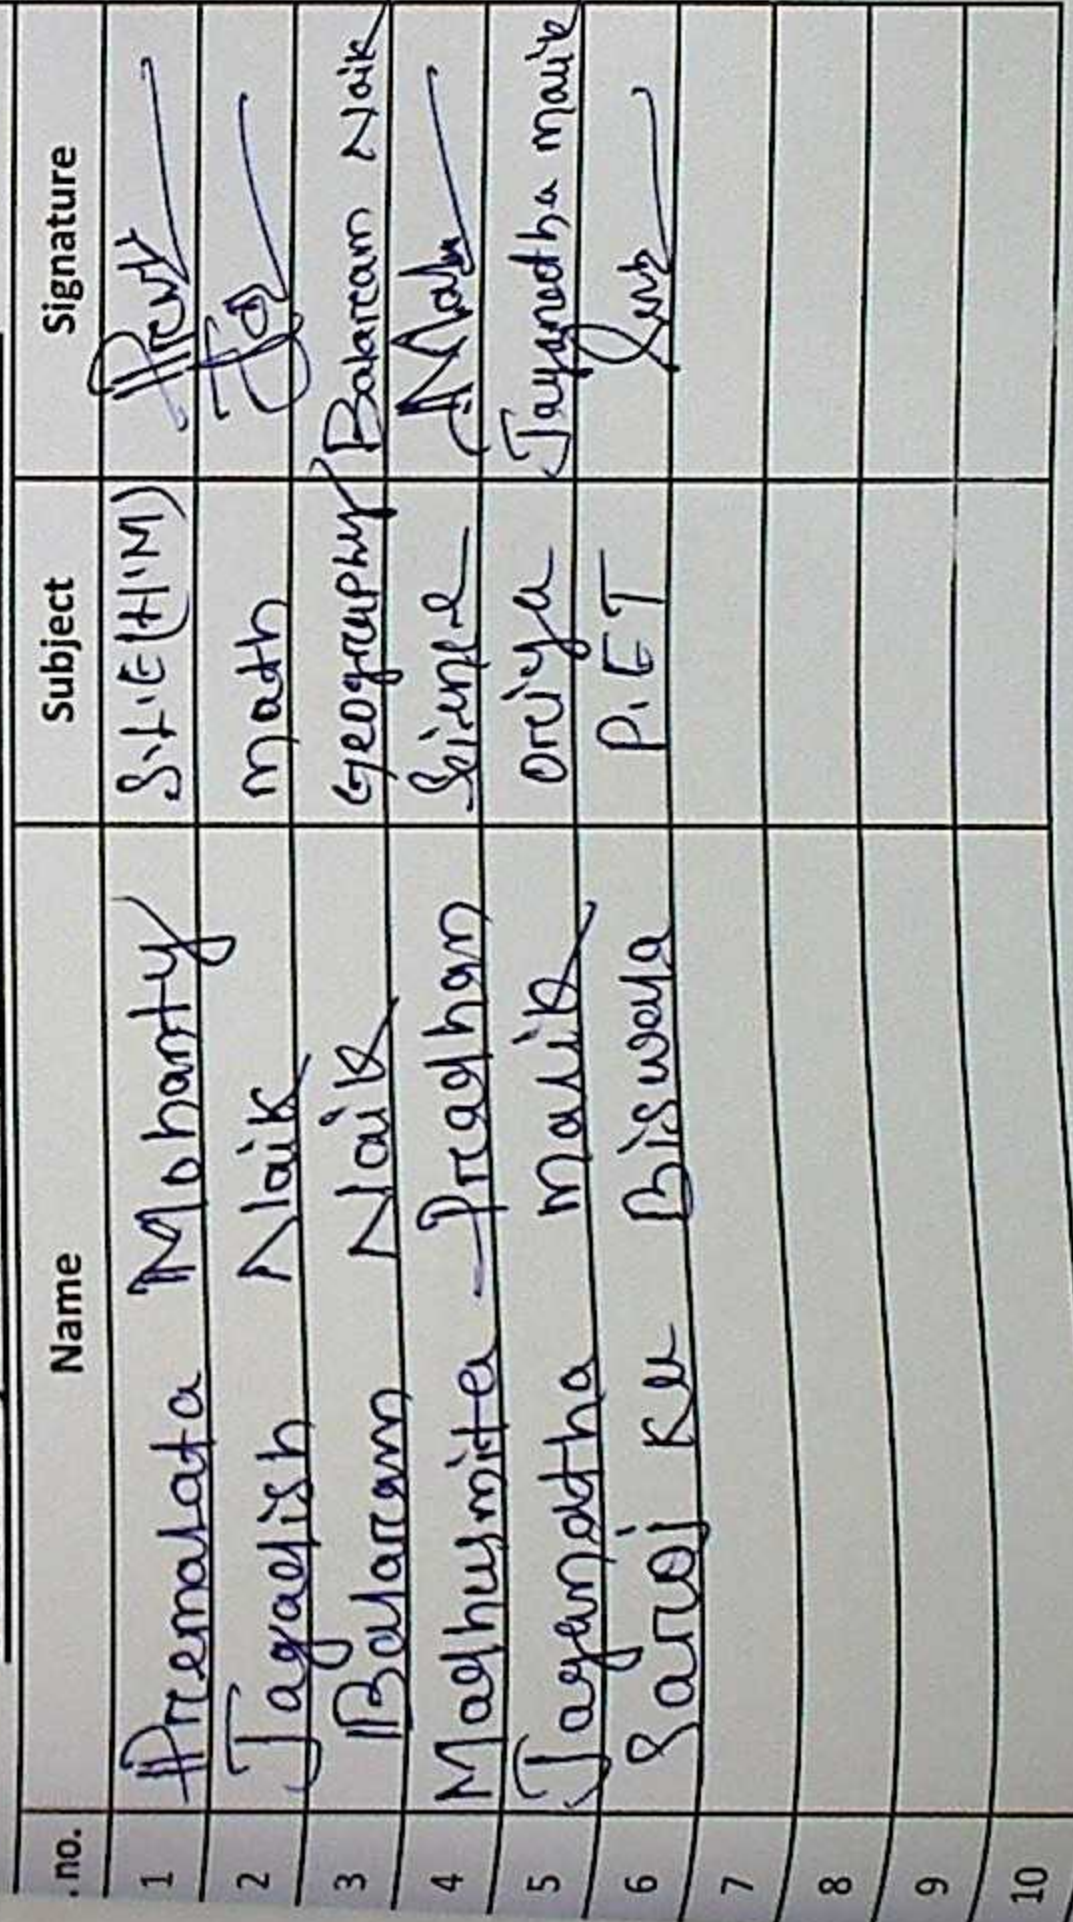 . no. Name Subject Signature
1 Premalata Mohanty S.I.E(H.M) Prem
2 Jagadish Naik Math Jag
3 Balaram Naik Geography Balaram Naik
4 Madhusmita Pradhan Seine Madhu
5 Jaganatha malik oriya Jayanatha malik
6 Saroj Ku Biswaya P.ET
7
8
9
10